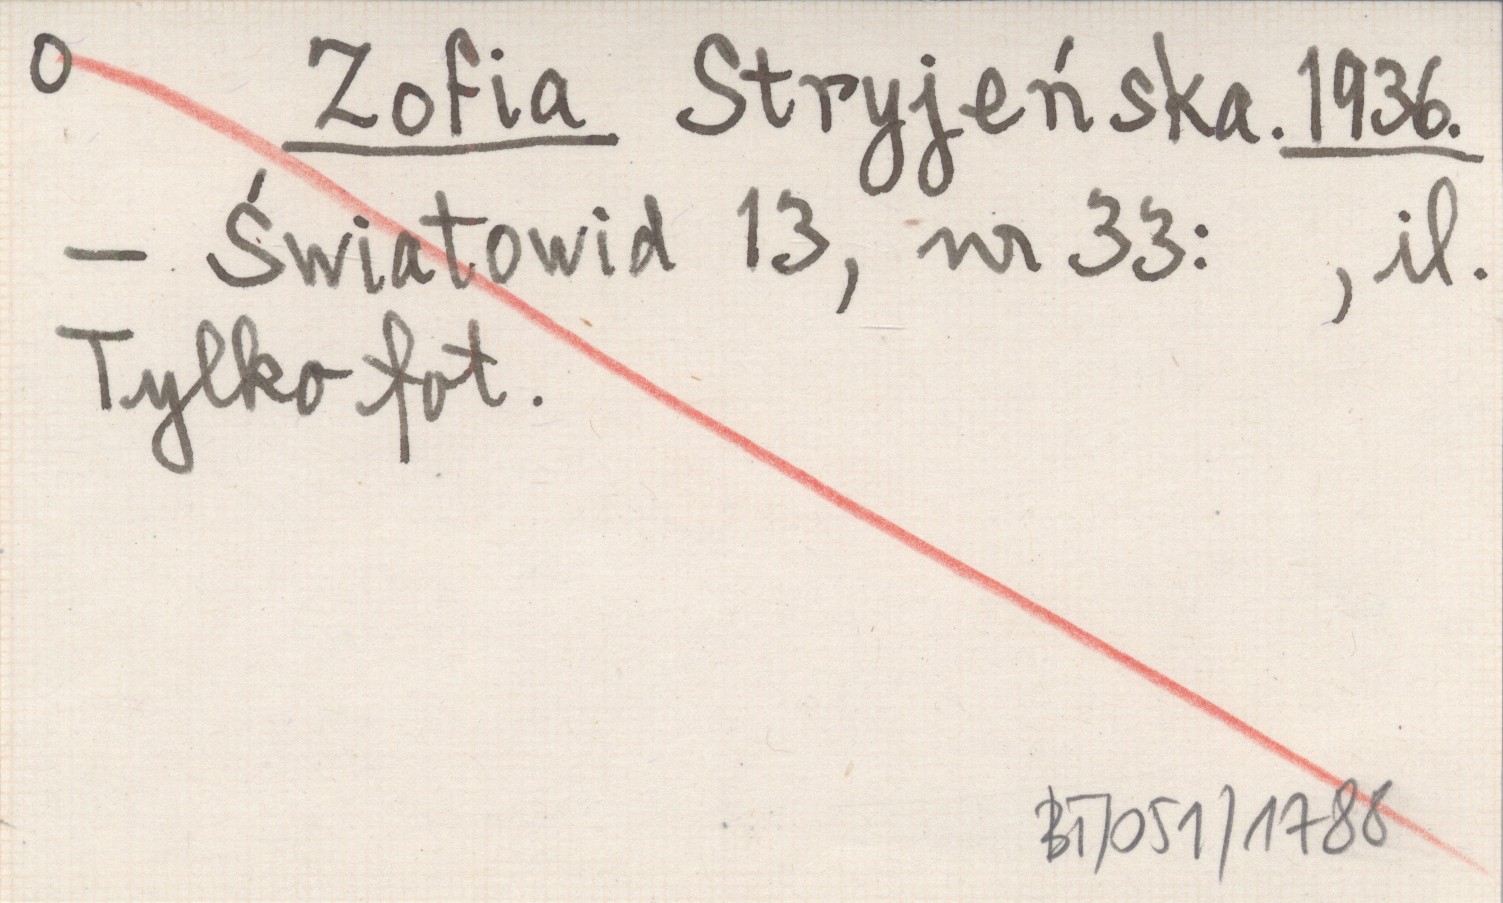 O Zofia Stryjeńska. 1936.
– Światowid 13, nr 33: , il.
Tylko fot.
BT/051/1786